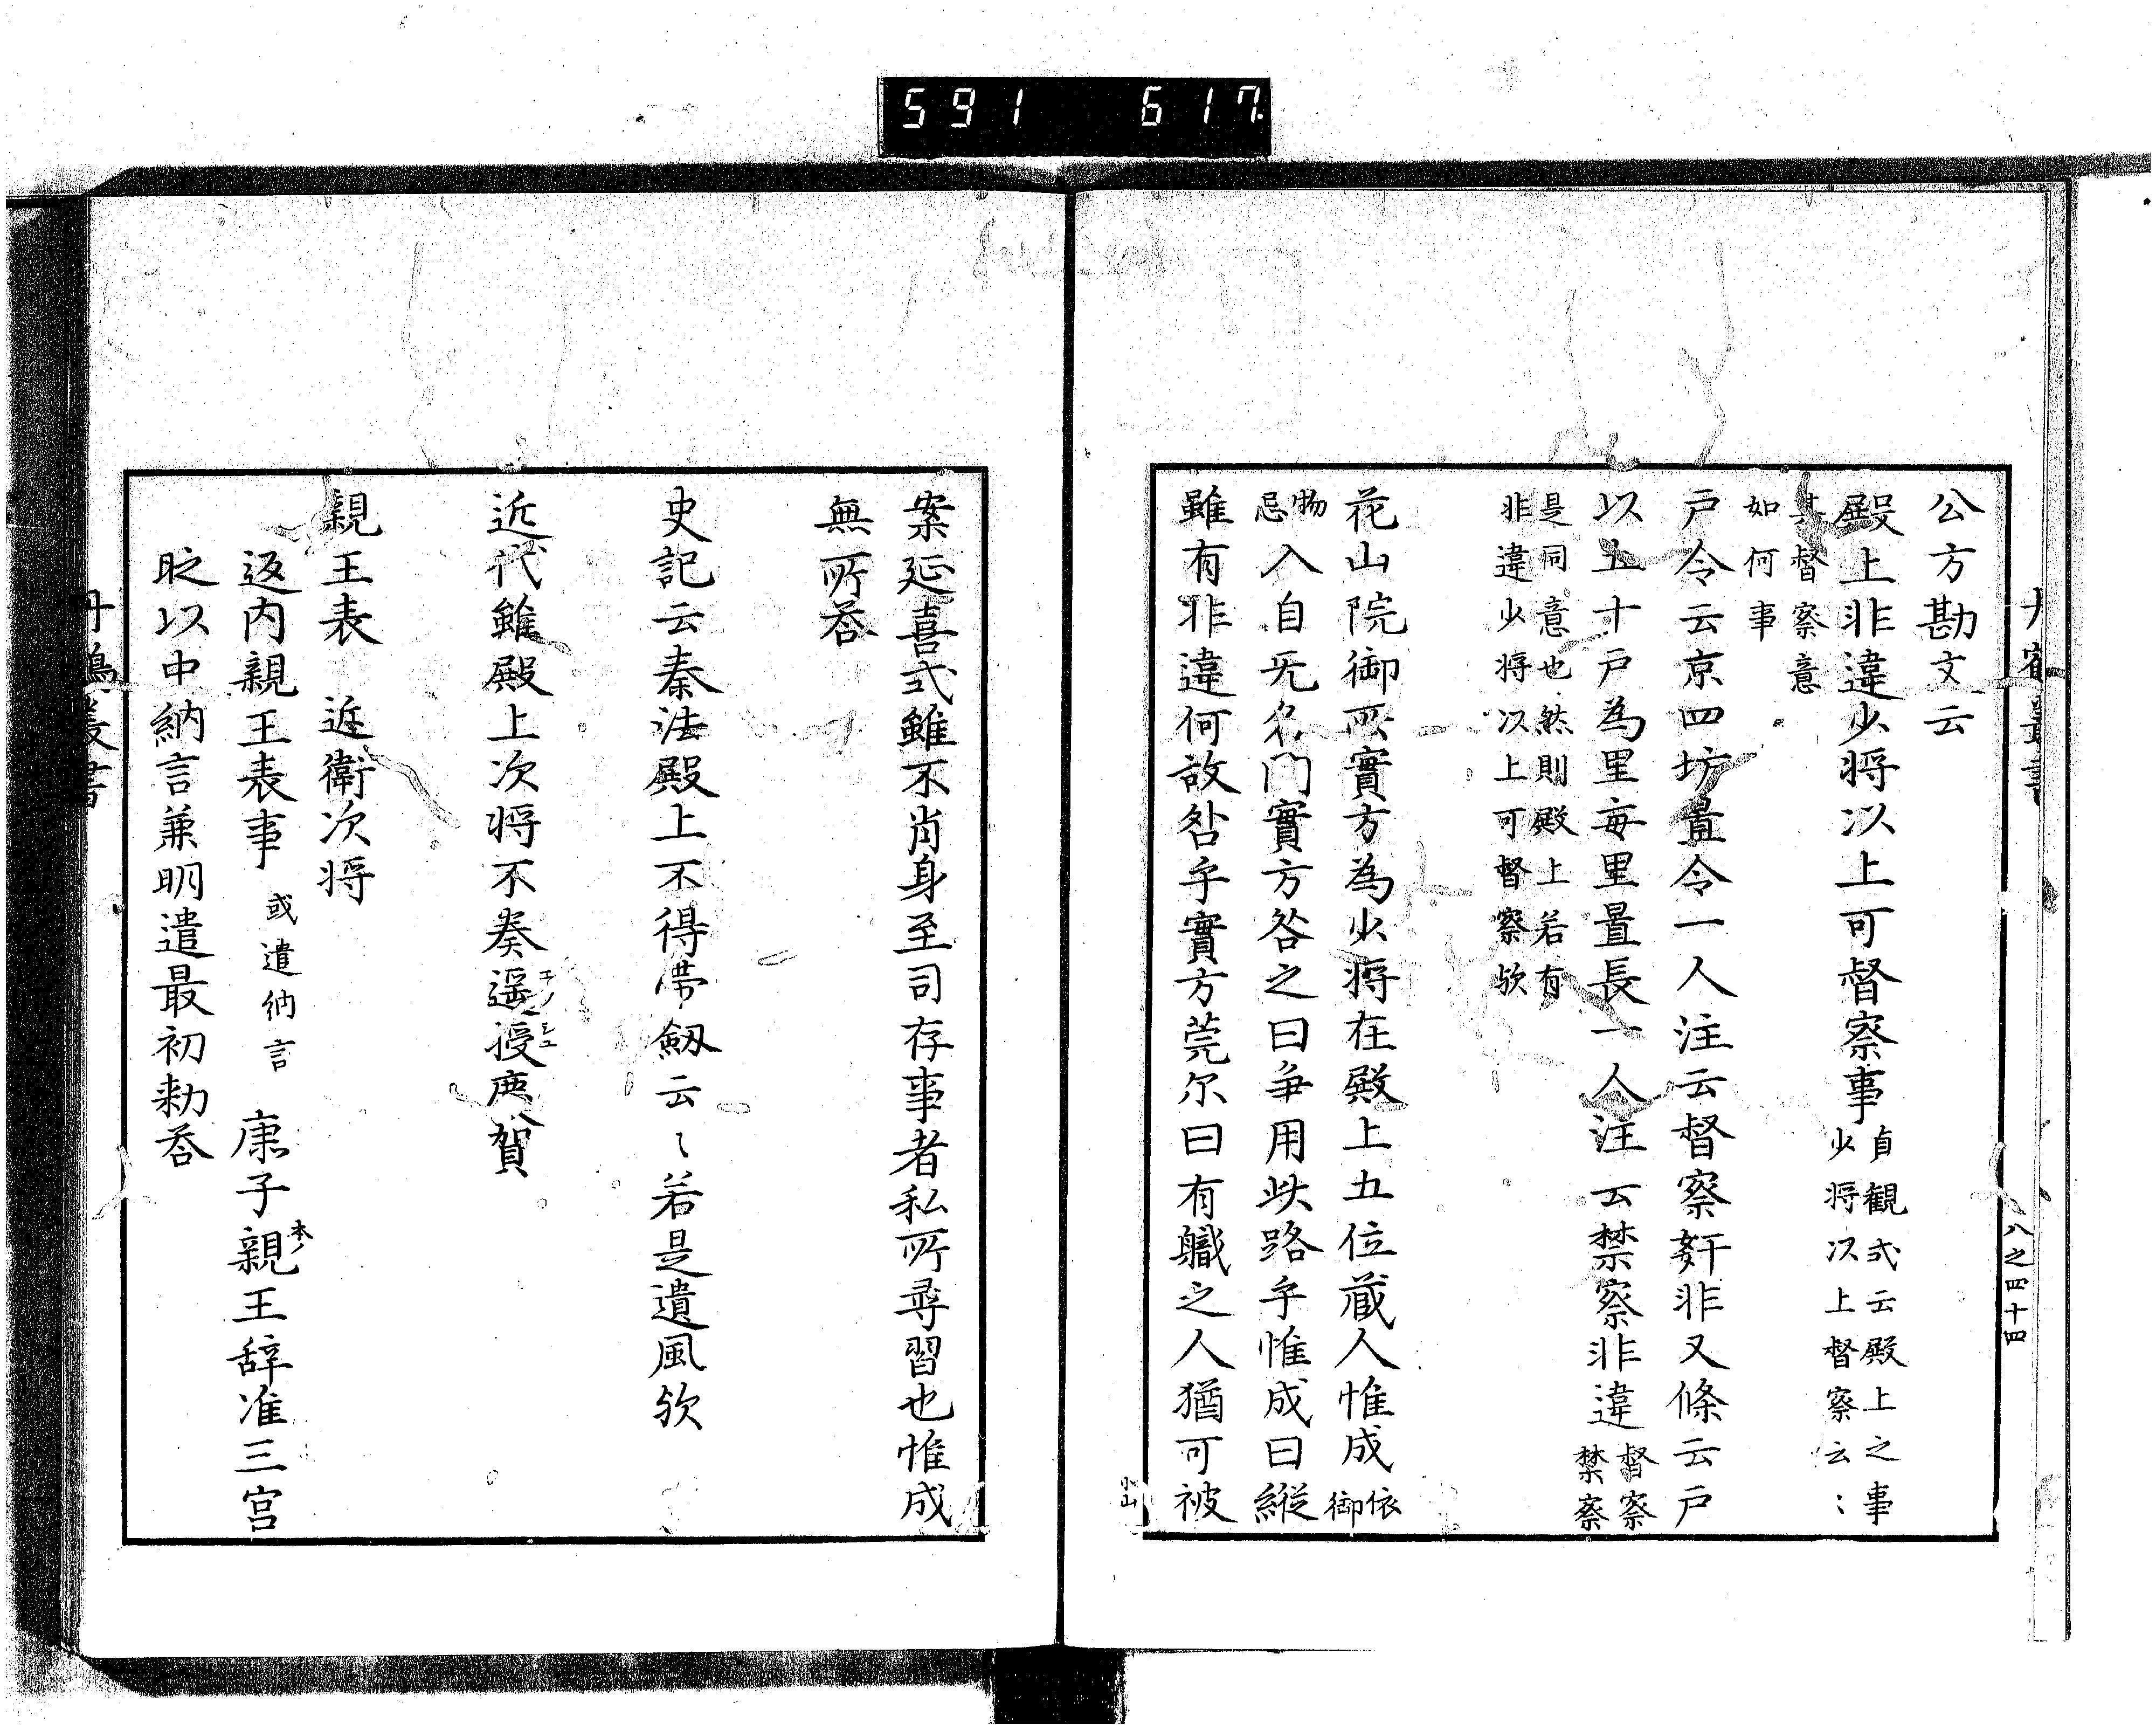 591 617
八之四十四
公方勘文云
殿上非違少将以上可督察事貞観式云殿上之事少将以上督察云〻
其督察意如何事
戸令云京四坊置令一人注云督察姧非又條云戸
以五十戸為里毎里置長一人注云禁察非違督察禁察
是同意也然則殿上若有非違少将以上可督察欤
花山院御所實方為少将在殿上五位蔵人惟成依御
物忌入自无名門實方咎之曰争用此路乎惟成曰縦
雖有非違何故咎乎實方莞尔曰有軄之人猶可被
小山
案延喜式雖不肖身至司存事者私所尋習也惟成
無所荅
史記云秦法殿上不得帯劔云〻若是遺風欤
近代雖殿上次将不奏遥授庶賀
親王表　近衛次将
返内親王表事或遣納言　康子親王辞准三宮
本ノ
昨以中納言兼明遣最初勅荅
丹鶴叢書